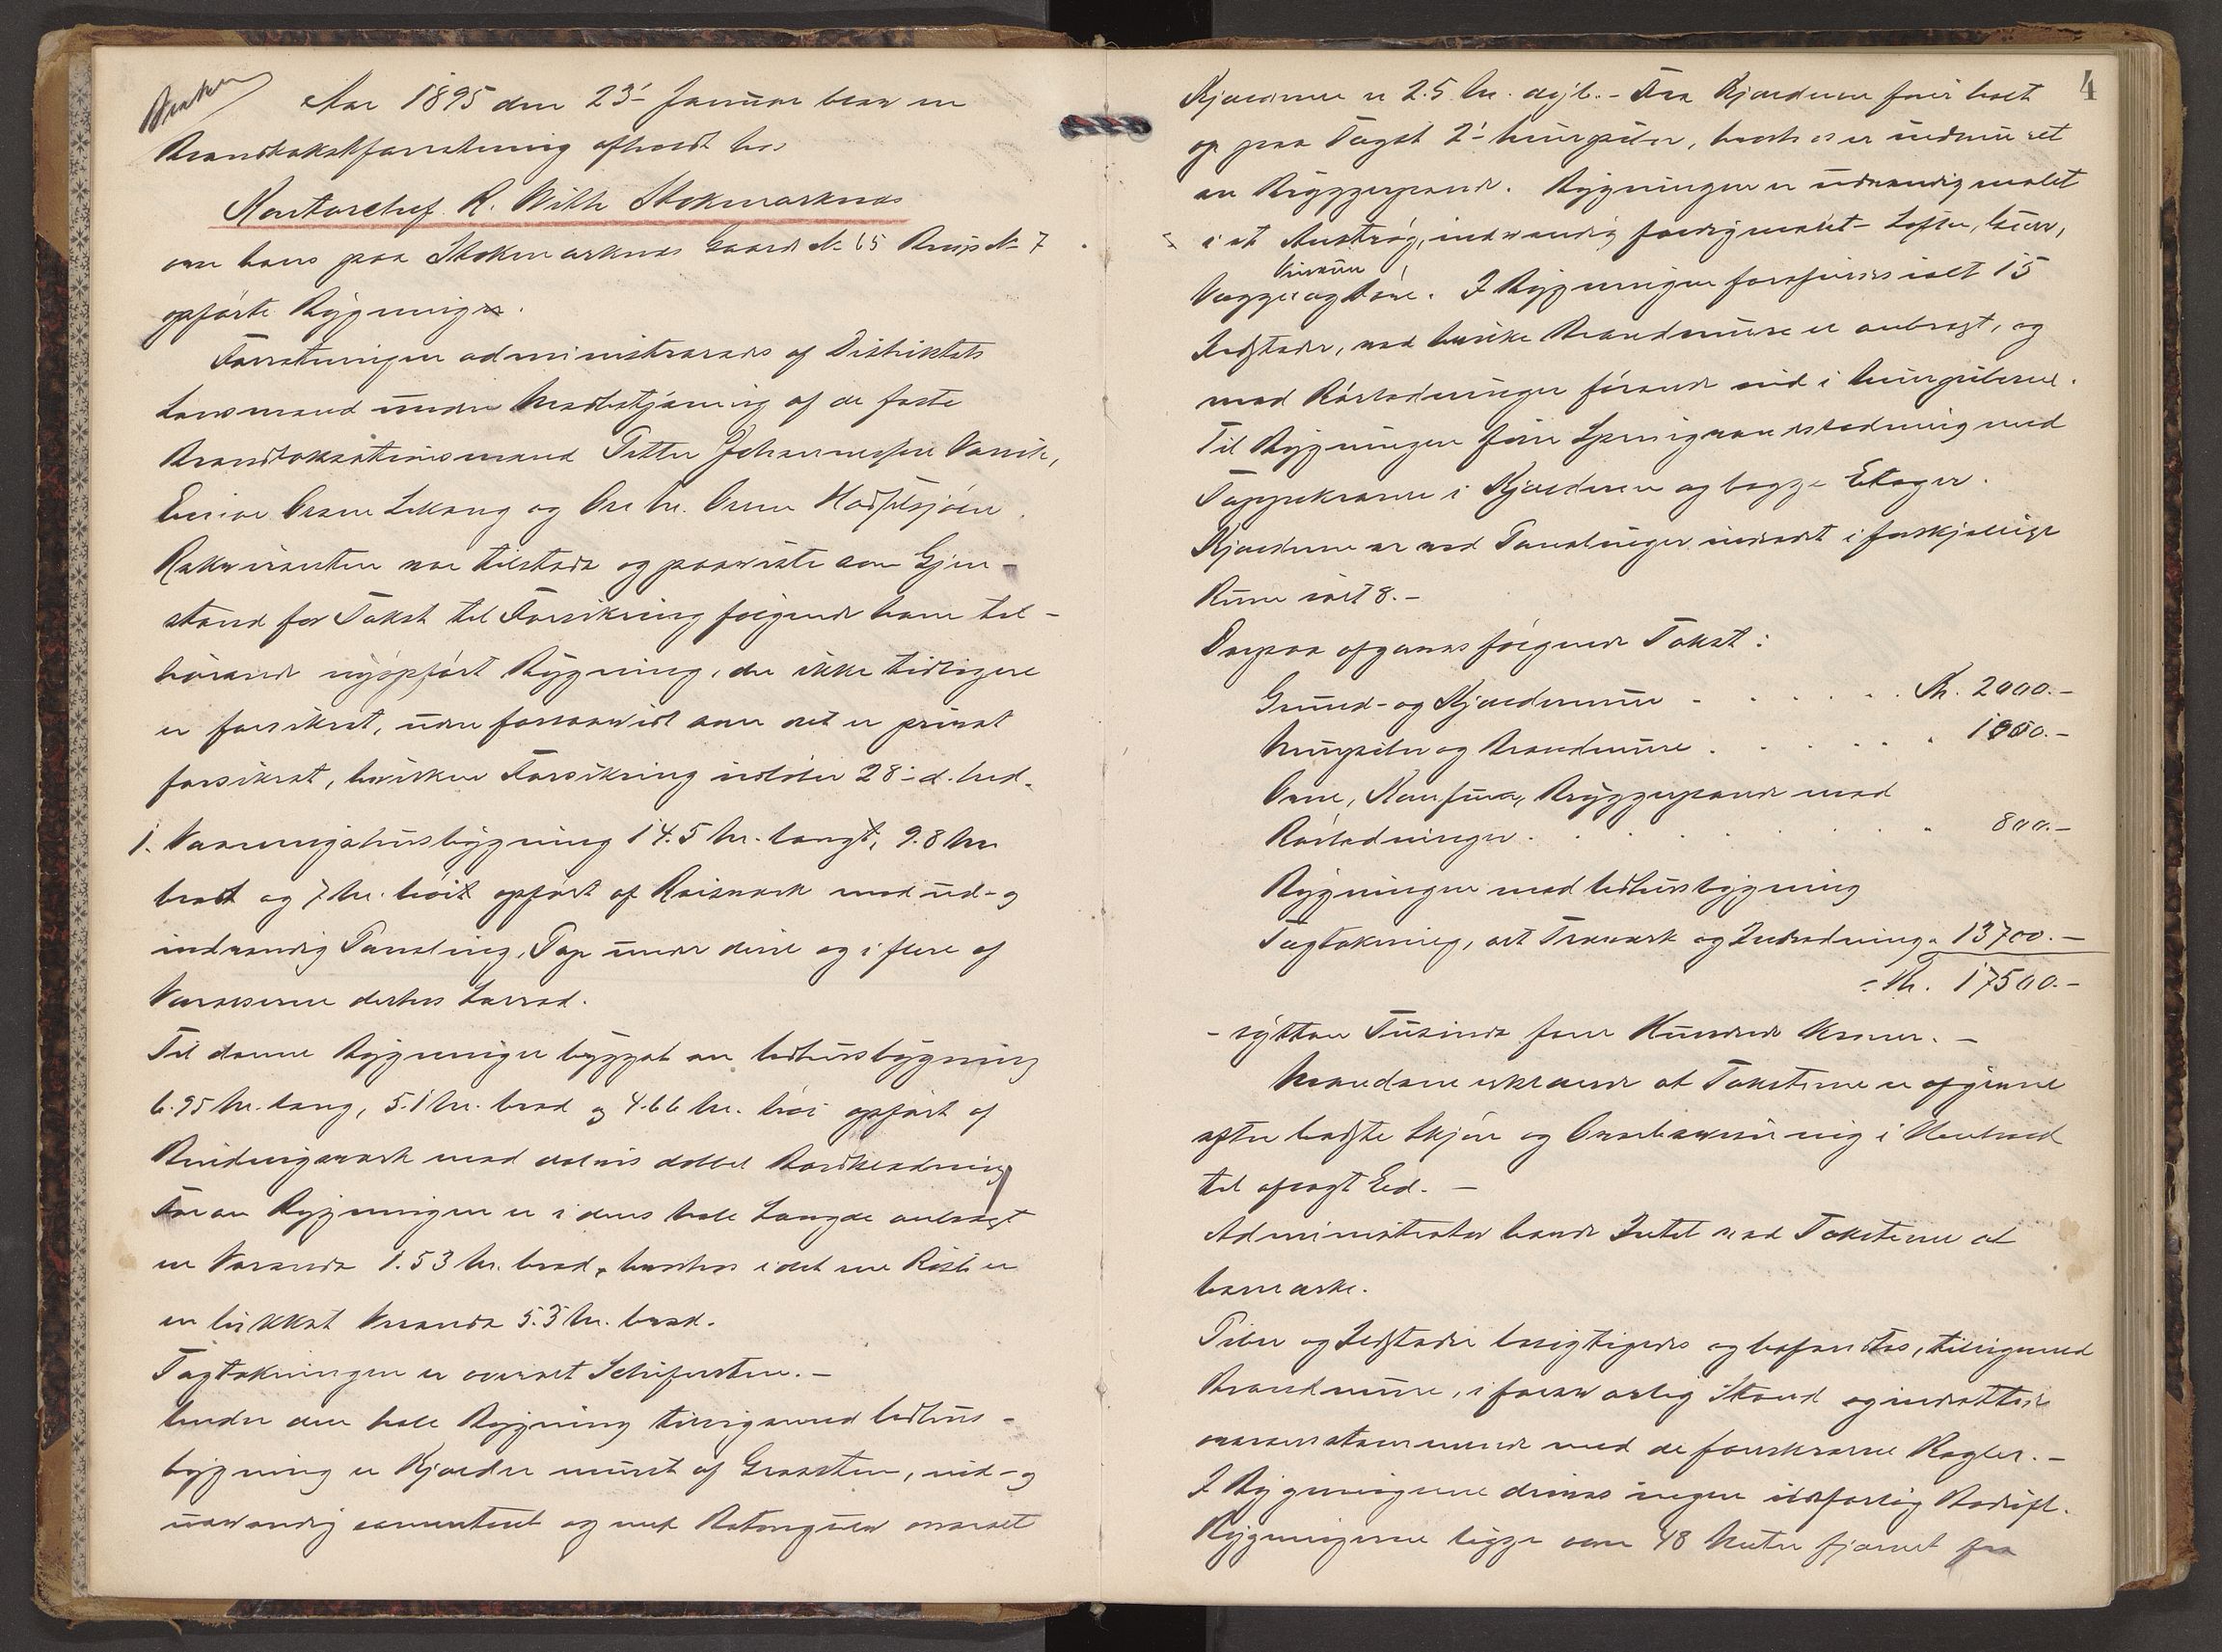 Aar 1895 den 23' Januar blev en
Brandtaxtforretning afholdt hos
Kontorchef R. With Stokmarknes
om hans paa Stokmarknes Gaards No 65 Brugs No 7
opførte Bygning.
Forretningen administreredes af Distriktets
Lensmand under Medbetjening af de faste
Brandtaxationsmænd Petter Johannesen Vasvik,
Eerive Olsen Lekang og Ole M. Olsen Hadselsjøen.
Rekvirenten var tilstede og paaviste som Gjen-
stand for Takst til Forsikring følgende ham til-
hørende nyopført Bygning, der ikke tidligere
er forsikret, uden forsaavidt som det er privat
forsikret, hvilken Forsikring udløber 28' d. Md.
1. Vaaningshusbygning 14.5 M. langt, 9.8 M.
bredt og 7 M. høit opført af Reisverk med ud- og
indvendig Paneling, Pap under denne og i flere af
Værelserne desuden Lærred.
Til denne Bygningen bygget en Udhusbygning
6.95 M. lang, 5.1 M. bred og 4.66 M. høi opført af
Bindingsverk med delvis dobbel Bordklædning
Foran Bygningen er i dens hele Længde anbragt
en Veranda 1.53 M. bred, hvorhos i det ene Røst er
en lukket Veranda 5.3 M. bred.
Tagtækningen er overalt Skifersten. -
Under den hele Bygning tilligemed Udhus-
bygning er Kjælder muret af Graasten, ind- og
udvendig cementeret og med Betongulv overalt
4
Kjælderen er 2.5 M. dyb. - Fra Kjælderen fører helt
op paa Taget 2' Murpiber, hvorhos er indmuret
en Bryggepande. Bygningen er udvendig malet
2 et Anstrøg, indvendig færdigmalet - Lofter, Gulve,
Vinduer
Vægge og Døre. I Bygningen forefindes ialt 15
Ildsteder, ved hvilke Brandmure er anbragt, og
med Rørledninger førende ind i Murpiberne.
Til Bygningen fører Springvandsledning med
Tappekraner i Kjælderen og begge Etager.
Kjælderen er ved Panelinger inddelt i forskjellige
Rum ialt 8. -
Derpaa afgaves følgende Takst:
Grund- og Kjældermure - . . . . Kr. 2000.-
Murpiber og Brandmure . . . . . " 1000.-
Ovne, Komfur, Bryggepande med
Rørledninger . . . . . . . " 800.-
Bygningen med Udhusbygning
Tagtækning, alt Træværk og Indredning " 13700.-
= Kr. 17500.-
- sytten Tusinde fem Hundrede Kroner. -
Mændene erklærede at Taksterne er afgivne
efter bedste Skjøn og Overbevisning i Henhold
til aflagt Ed. -
Administrator havde Intet ved Taksterne at
bemærke.
Piber og Ildsteder besigtigedes og befandtes, tilligemed
Brandmure, i forsvarlig Stand og indrettede
overensstemmende med de foreskrevne Regler. -
I Bygningerne drives ingen ildsfarlig Bedrift.
Bygningerne ligge om 48 Meter fjernet fra